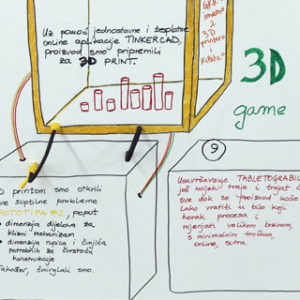 Uz pomoć jednostavne i besplatne
online aplikacije TINKERCAD,
proizvod smo pripremili
za 3D PRINT.
imamo
2
3D
printera
i
3D
game
D printom smo otkrili
sve suptilne probleme
PROTOTIPA #2, poput
• dimenzija dijelova za
klizni mehanizam
• dimenzija rupica i čvijića
potrebnih za čvrstoću
konstrukcije
Također, šmirglali smo.
9
Usavršavanje TABLETOGRABILICE
još uvijek traje i trajat će
sve dok se proizvod može
lako vratiti u bilo koji
korak procesa i
mijenjati velikom brzinom,
s minimalnim troškom,
online, sutra.